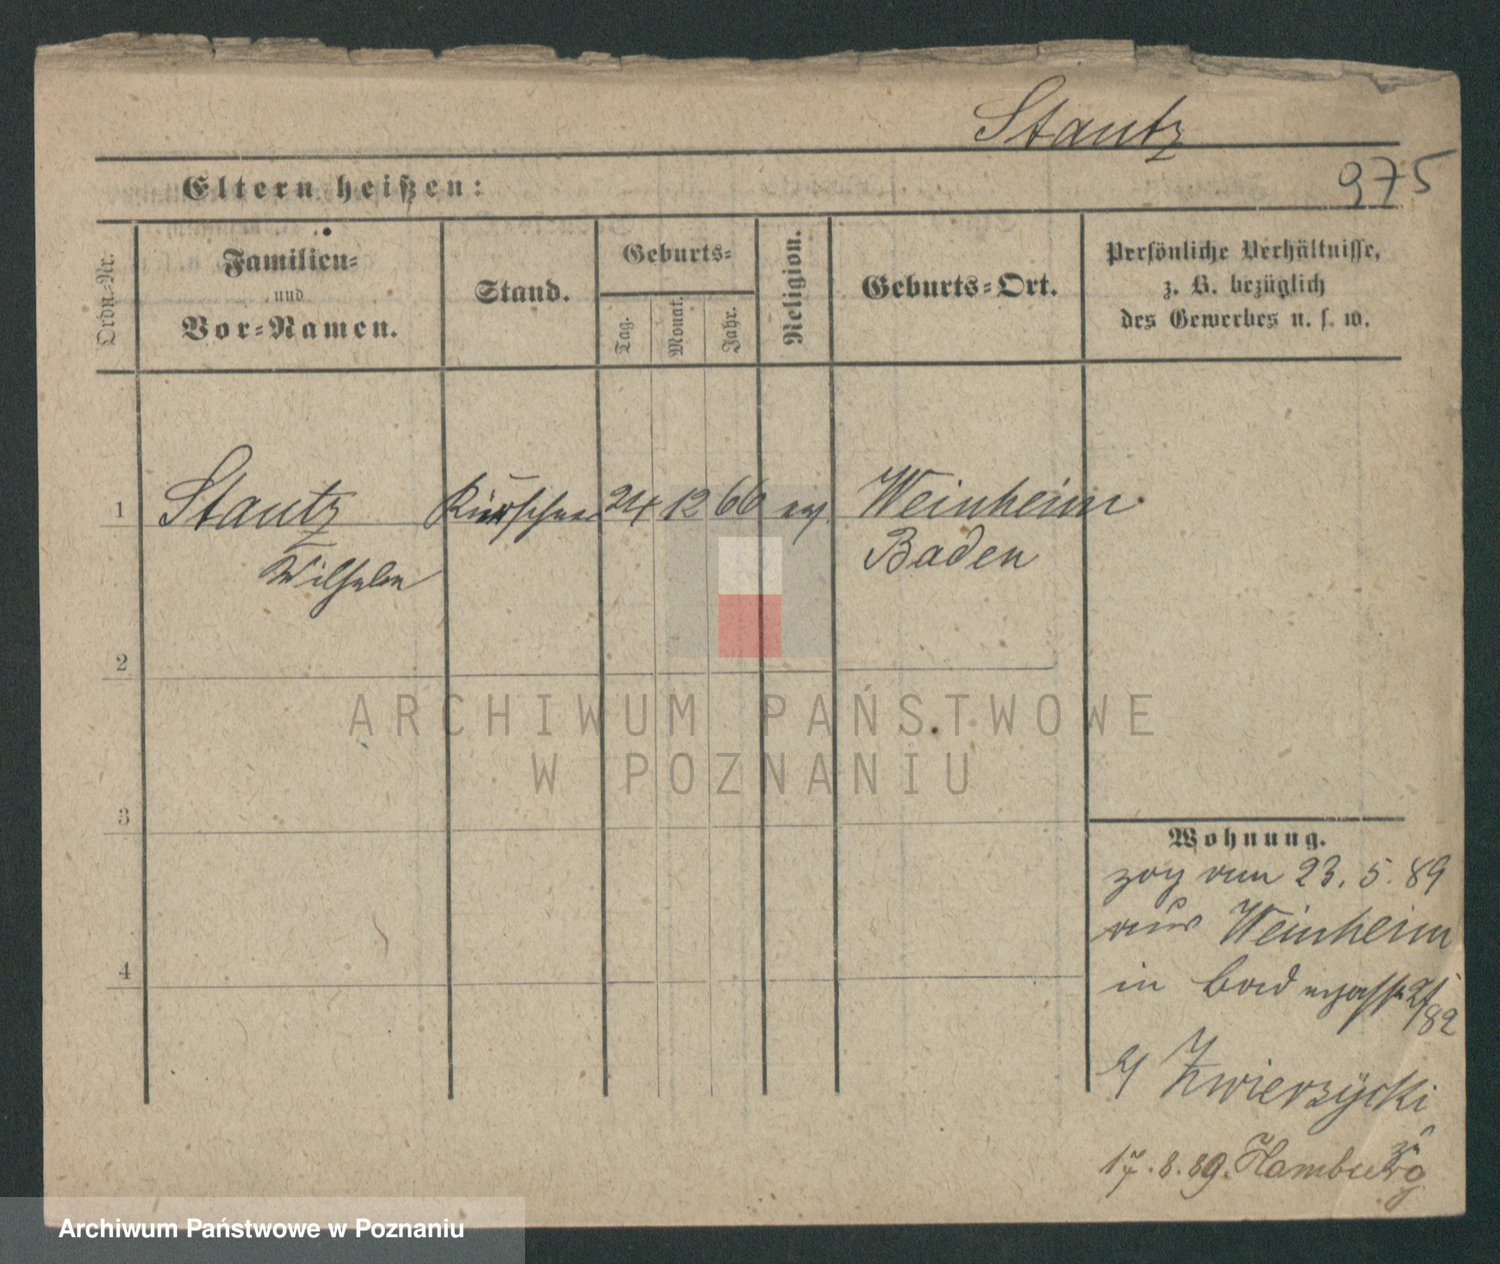 Stautz
975
Eltern heißen:
Ordn.-Nr.
Familien-
und
Vor-Namen.
Stand.
Geburts-
Tag.
Monat.
Jahr.
Religion.
Geburts-Ort.
Persönliche Verhältnisse,
z. B. bezüglich
des Gewerbes u. s. w.
1 Stautz Kürschner 24 12 66 ev. Weinheim
Wilhelm Baden
2
3
4
Wohnung.
zog am 23. 5. 89
aus Weinheim
in
b/ Zwierzycki
17. 8. 89. Hamburg
ARCHIWUM PAŃSTWOWE
W POZNANIU
Archiwum Państwowe w Poznaniu